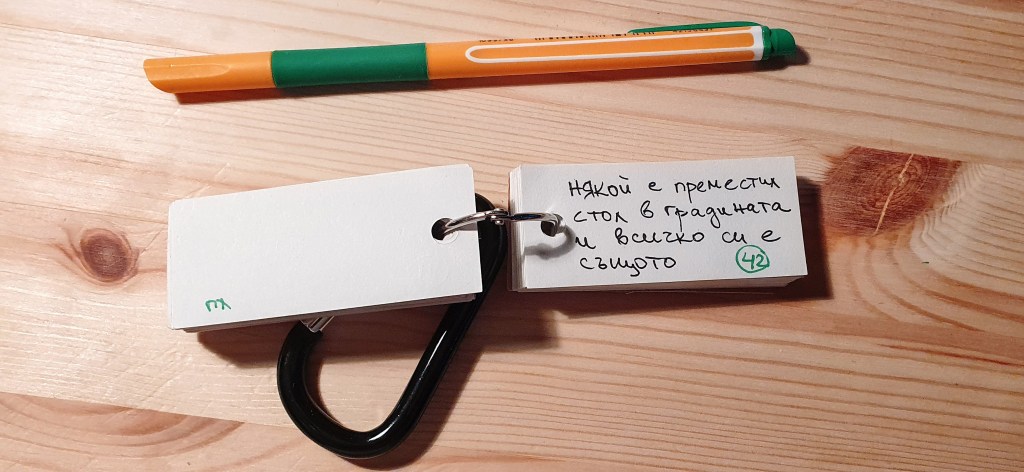 някой е преместил
стол в градината
и всичко си е
същото
42